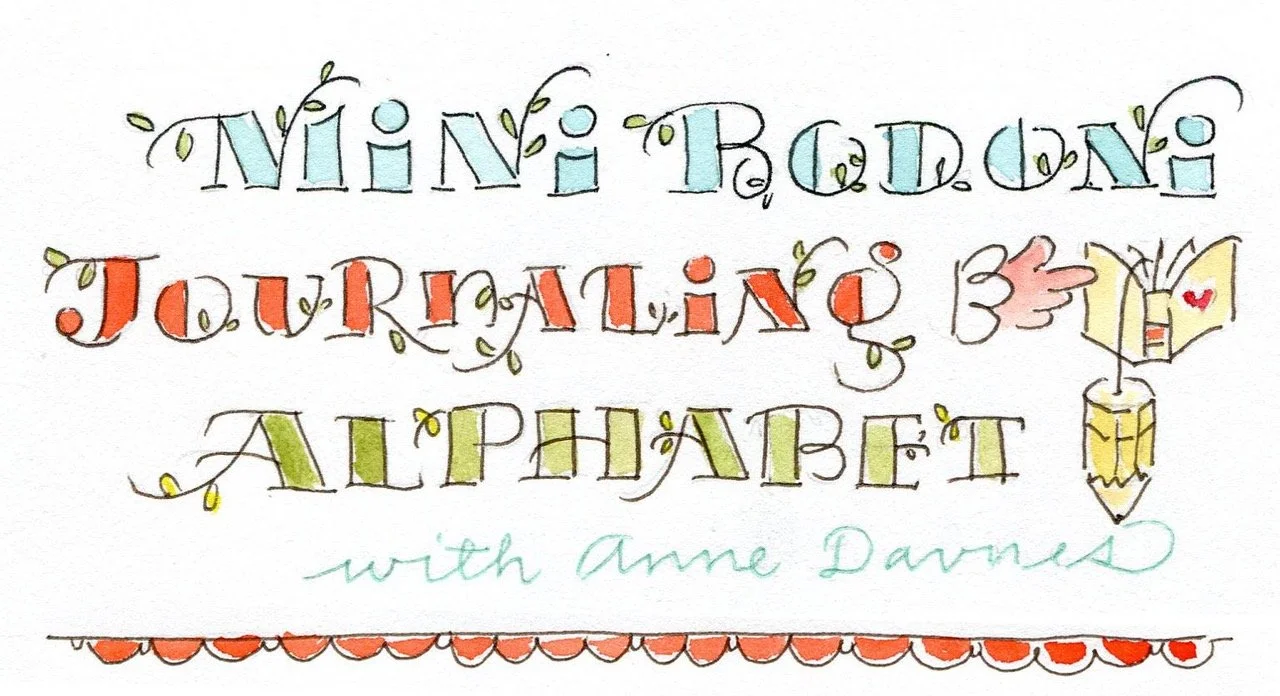 MiNi BODONi
JOURNALiNg
ALPHABET
with Anne Davnes